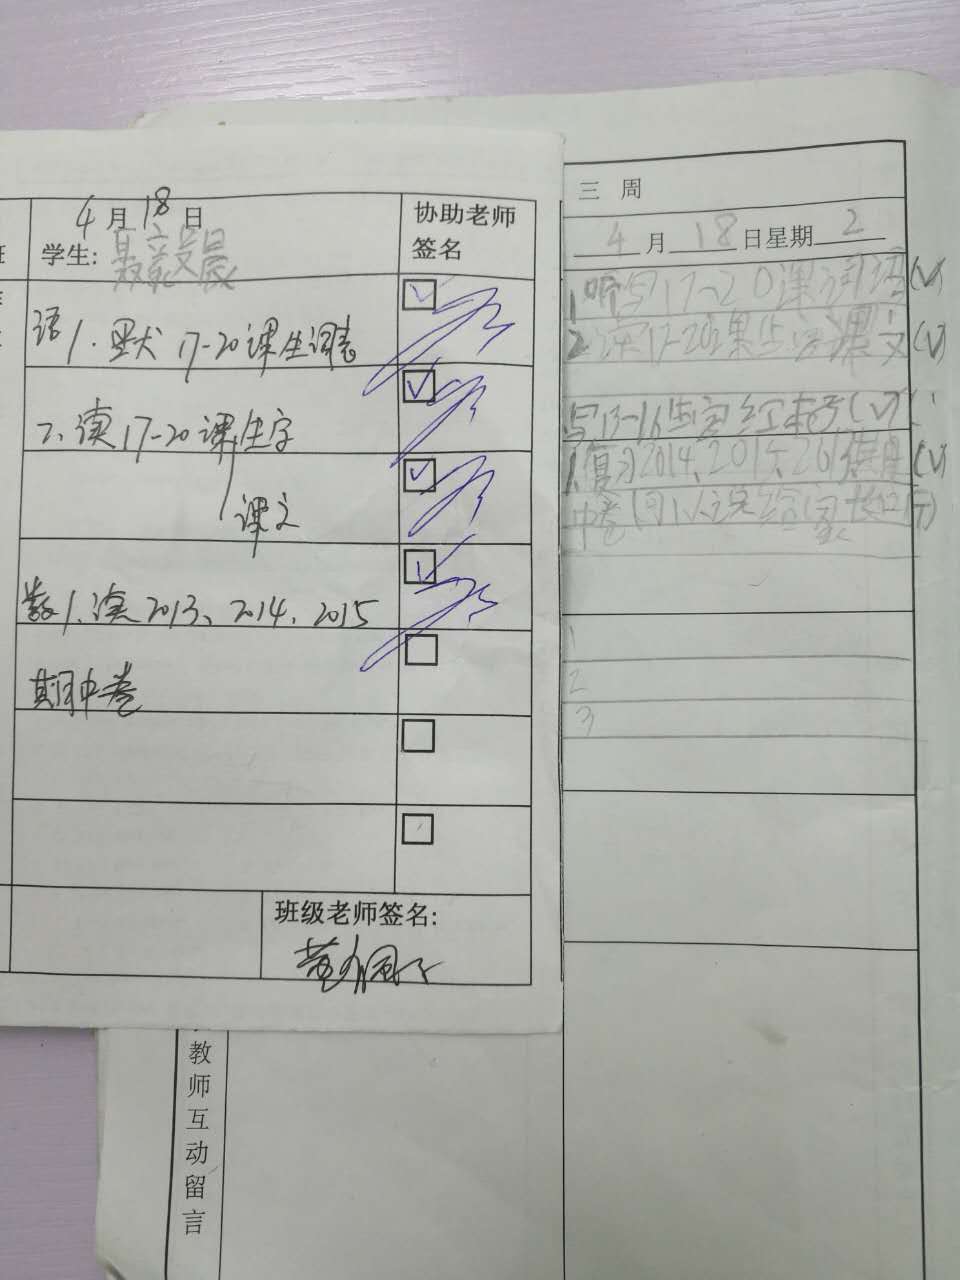 4月18日
学生:
协助老师
签名
语1.默17-20课生词表
2、读17-20课生字
课文
数1、读2013、2014、2015
期中卷
班级老师签名:
三周
4月18日星期2
1听写17-20课词语(√)
2读17-20课生字课文(√)
写13-16生字
1复习2014、2015、
中卷(可以读给家长听)
1
2
3
教师互动留言